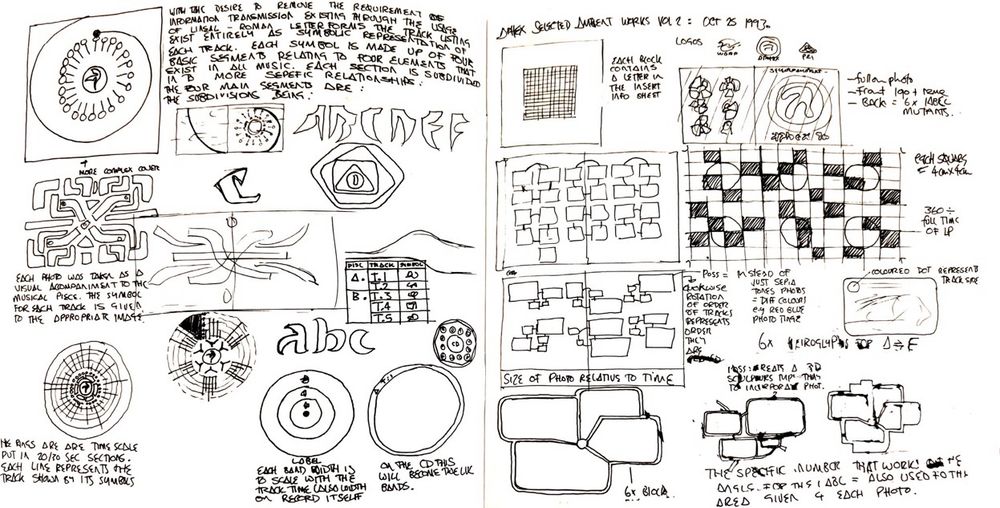 WITH THE DESIRE TO REMOVE THE REQUIREMENT OF
INFORMATION TRANSMISSION EXISTING THROUGH THE USAGE
OF LINEAL - ROMAN LETTERFORMS THE TRACK LISTING
EXIST ENTIRELY AS SYMBOLIC REPRESENTATION OF
EACH TRACK. EACH SYMBOL IS MADE UP OF FOUR
BASIC SEGMENTS RELATING TO FOUR ELEMENTS THAT
EXIST IN ALL MUSIC. EACH SECTION IS SUBDIVIDED
IN MORE RELATIONSHIPS.
THE FOUR MAIN SEGMENTS ARE:
THE SUBDIVISIONS BEING:
ABCDEF
MORE COMPLEX COVER
D
EACH PHOTO WAS TAKEN AS A
VISUAL ACCOMPANIMENT TO THE
MUSICAL PIECE. THE SYMBOL
FOR EACH TRACK IS GIVEN
TO THE APPROPRIATE IMAGE
DISC TRACK SYMBOL
A. T.1
T.2
B. T.3
T.4
T.5
abc
CD
RINGS ARE TIME SCALE
PUT IN 20/30 SEC SECTIONS.
EACH LINE REPRESENTS THE
TRACK SHOWN BY ITS SYMBOLS
LABEL
EACH BAND WIDTH IS
TO SCALE WITH THE
TRACK TIME (ALSO WIDTH
ON RECORD ITSELF
ON THE CD THIS
WILL BECOME
BANDS.
SELECTED AMBIENT WORKS VOL 2 = OCT 25 1993.
LOGOS
WARP
EACH BLOCK
CONTAINS
A LETTER IN
THE INSERT
INFO SHEET
FULL ON PHOTO
FRONT LOGO + NAME
BACK = 6x LABEL
MUTANTS.
EACH SQUARE
= 4cm x 4cm
360 ÷
FULL TIME
OF LP
CLOCKWISE
ROTATION
OF ORDER
OF TRACKS
REPRESENTS
ORDER
THEY
ARE
POSS = INSTEAD OF
JUST SEPIA
TONED PHOTOS
= DIF COLOURS
e.g RED BLUE
PHOTO
COLOURED DOT REPRESENTS
TRACK SIDE
6x
SIZE OF PHOTO RELATIVE TO TIME
POSS: CREATE A 3D
SCULPTURE
TO INCORPORATE PHOT.
6x BLOCK
THE SPECIFIC NUMBER THAT WORKS THE
ANGLE. FOR THE LABEL = ALSO USED TO THE
AREA GIVEN 4 EACH PHOTO.